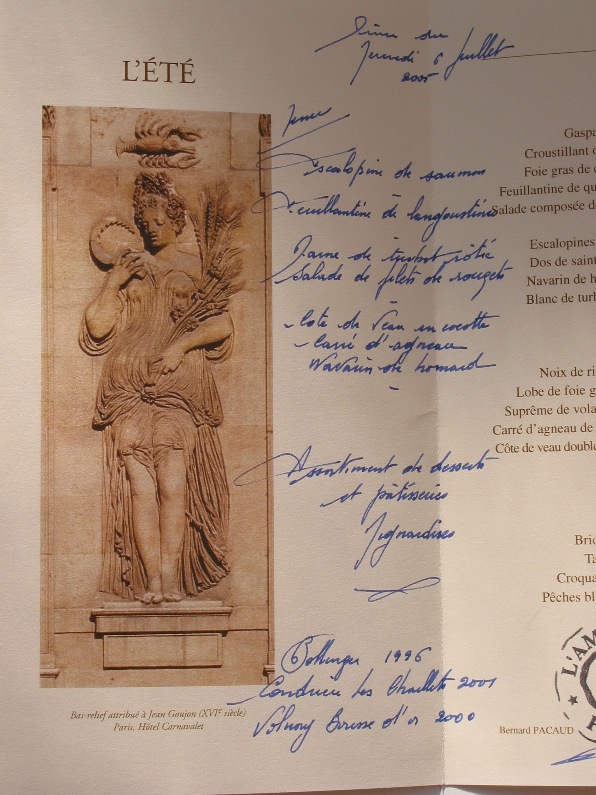 L'ÉTÉ
Dîner du
Jeudi 6 Juillet
2005
Escalopine de saumon
Feuillantine de langoustines
Darne de turbot rôtie
Salade de filets de rougets
- Côte de Veau en cocotte
- Carré d'agneau
Navarin de homard
Assortiment de desserts
et pâtisseries
Mignardises
Bollinger 1996
Condrieu Les Chaillets 2001
Volnay Bousse d'or 2000
Bas-relief attribué à Jean Goujon (XVIe siècle)
Paris, Hôtel Carnavalet
Gaspa
Croustillant d
Foie gras de c
Feuillantine de qu
Salade composée d
Escalopines
Dos de saint
Navarin de h
Blanc de turb
Noix de ri
Lobe de foie g
Suprême de vola
Carré d'agneau de
Côte de veau double
Brio
Ta
Croqua
Pêches bl
L'AM
Bernard PACAUD